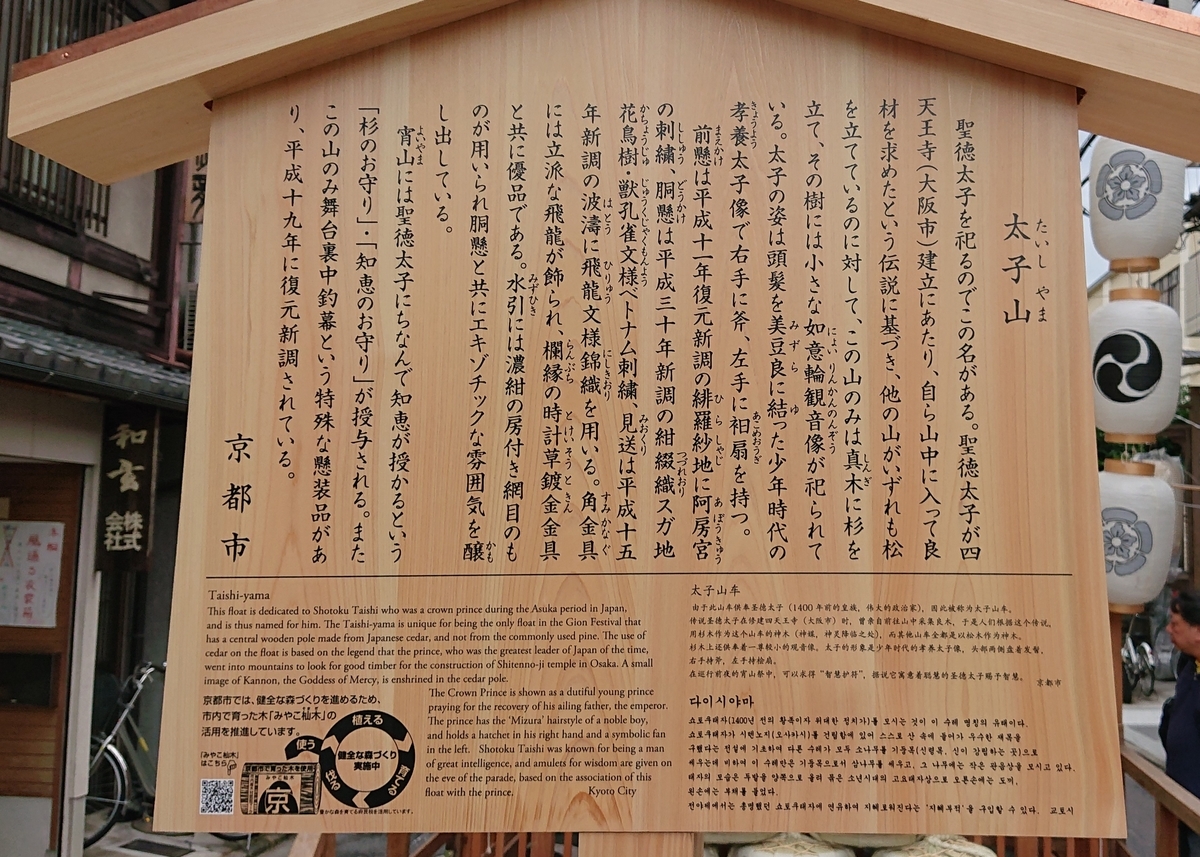 太子山
たいし やま
聖徳太子を祀るのでこの名がある。聖徳太子が四
天王寺(大阪市)建立にあたり、自ら山中に入って良
材を求めたという伝説に基づき、他の山がいずれも松
を立てているのに対して、この山のみは真木に杉を
立て、その樹には小さな如意輪観音像が祀られて
いる。太子の姿は頭髪を美豆良に結った少年時代の
孝養太子像で右手に斧、左手に衵扇を持つ。
前懸は平成十一年復元新調の緋羅紗地に阿房宮
の刺繍、胴懸は平成三十年新調の紺綴織スガ地
花鳥樹・獣孔雀文様ベトナム刺繍、見送は平成十五
年新調の波濤に飛龍文様錦織を用いる。角金具
には立派な飛龍が飾られ、欄縁の時計草鍍金金具
と共に優品である。水引には濃紺の房付き網目のも
のが用いられ胴懸と共にエキゾチックな雰囲気を醸
し出している。
宵山には聖徳太子にちなんで知恵が授かるという
「杉のお守り」・「知恵のお守り」が授与される。また
この山のみ舞台裏中釣幕という特殊な懸装品があ
り、平成十九年に復元新調されている。
京都市
Taishi-yama
This float is dedicated to Shotoku Taishi who was a crown prince during the Asuka period in Japan,
and is thus named for him. The Taishi-yama is unique for being the only float in the Gion Festival that
has a central wooden pole made from Japanese cedar, and not from the commonly used pine. The use of
cedar on the float is based on the legend that the prince, who was the greatest leader of Japan of the time,
went into mountains to look for good timber for the construction of Shitenno-ji temple in Osaka. A small
image of Kannon, the Goddess of Mercy, is enshrined in the cedar pole.
The Crown Prince is shown as a dutiful young prince
praying for the recovery of his ailing father, the emperor.
The prince has the 'Mizura' hairstyle of a noble boy,
and holds a hatchet in his right hand and a symbolic fan
in the left. Shotoku Taishi was known for being a man
of great intelligence, and amulets for wisdom are given on
the eve of the parade, based on the association of this
float with the prince. Kyoto City
京都市では、健全な森づくりを進めるため、
市内で育った木「みやこ杣木」の
活用を推進しています。
「みやこ杣木」
はこちら
植える
使う
健全な森づくり
実施中
京都市で育った木を使用
みやこ杣木
京
太子山车
由于此山车供奉圣德太子(1400年前的皇族,伟大的政治家),因此被称为太子山车。
传说圣德太子在修建四天王寺(大阪市)时,曾亲自前往山中采集良木,于是人们根据这个传说,
用杉木作为这个山车的神木(神篱,神灵降临之处),而其他山车全都是以松木作为神木。
杉木上还供奉着一尊较小的观音像。太子的形象是少年时代的孝养太子像,头部两侧盘着发髻,
右手持斧,左手持桧扇。
在巡行前夜的宵山祭中,可以求得“智慧护符”,据说它寓意着聪慧的圣德太子赐予智慧。 京都市
다이시야마
쇼토쿠태자(1400년 전의 황족이자 위대한 정치가)를 모시는 것이 이 수레 명칭의 유래이다.
쇼토쿠태자가 시텐노지(오사카시)를 건립함에 있어 스스로 산 속에 들어가 우수한 재목을
구했다는 전설에 기초하여 다른 수레가 모두 소나무를 기둥목(신령목, 신이 강림하는 곳)으로
세우는데 비하여 이 수레만은 기둥목으로서 삼나무를 세우고, 그 나무에는 작은 관음상을 모시고 있다.
태자의 모습은 두발을 양쪽으로 올려 묶은 소년시대의 고요태자상으로 오른손에는 도끼,
왼손에는 부채를 들었다.
전야제에서는 총명했던 쇼토쿠태자에 연유하여 지혜로워진다는 '지혜부적'을 구입할 수 있다. 교토시
和玄
株式
会社